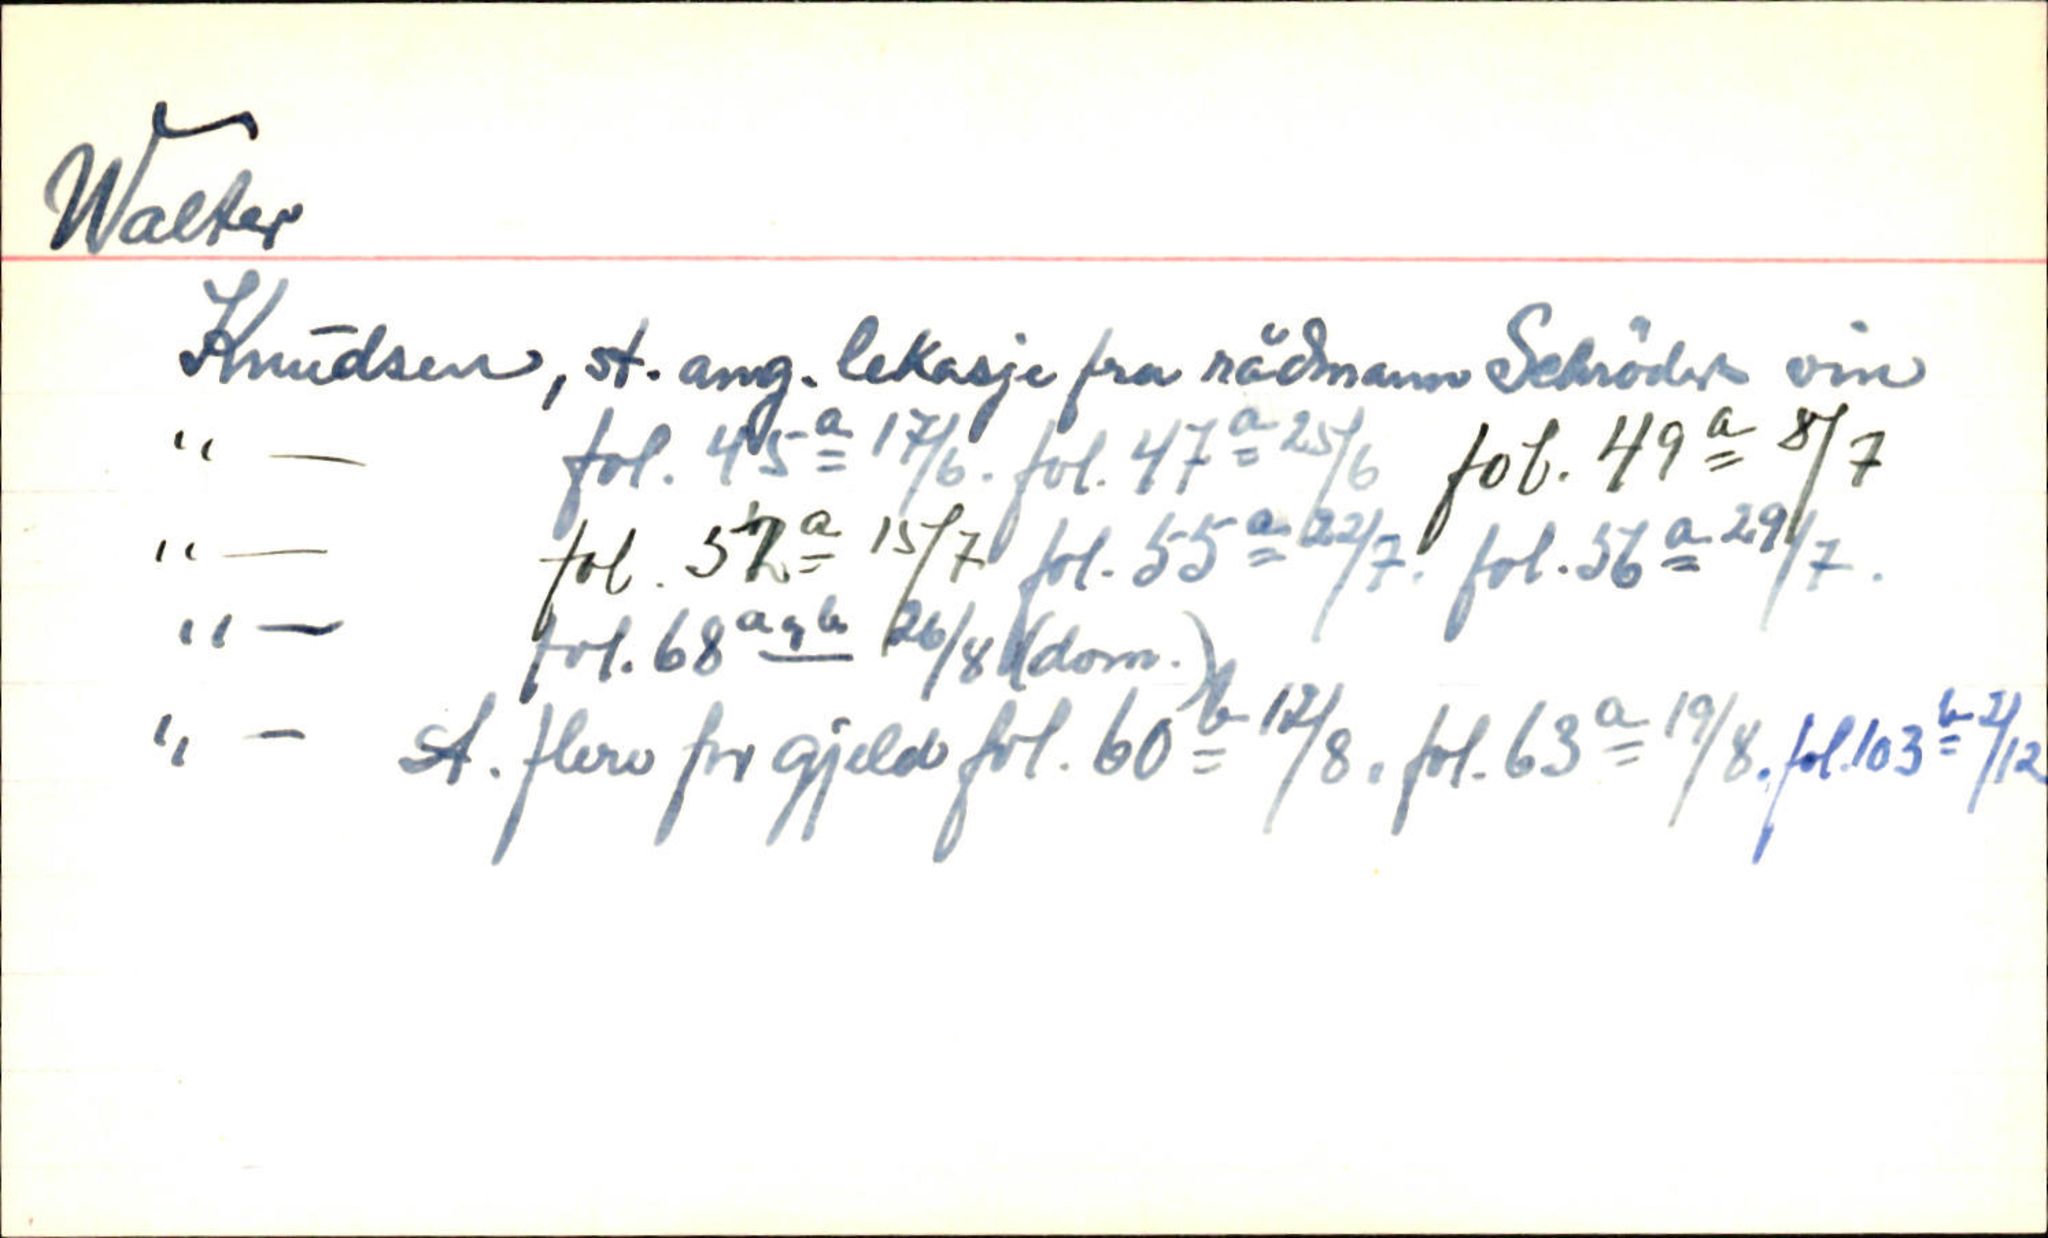 Walter
Knudsen, st. ang. lekasje fra rådmann Schröders vin
" — fol. 45 a 17/6. fol. 47 a 25/6 fol. 49 a 8/7
" — fol. 52 a 15/7 fol. 55 a 22/7. fol. 56 a 29/7.
" — fol. 68 a og b 26/8 (dom.)
" — st. flere for gjeld fol. 60 b 12/8. fol. 63 a 19/8. fol. 103 b 2/12